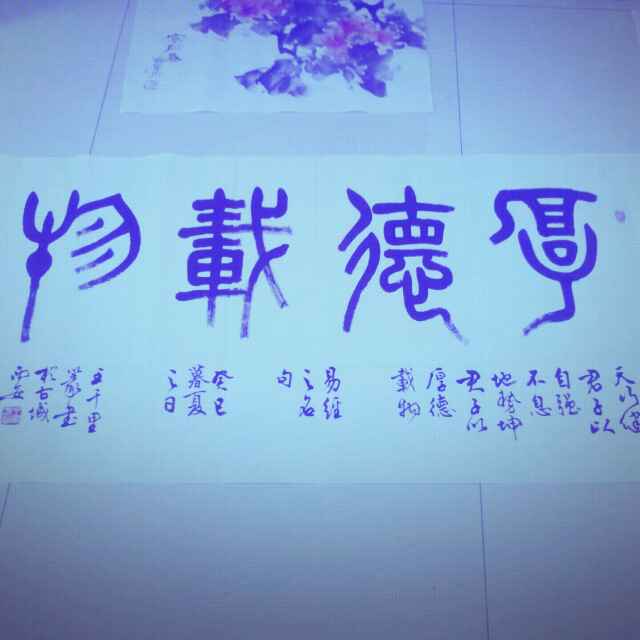 厚德載物
天行健
君子以
自强
不息
地势坤
君子以
厚德
載物
易經
之名
句
癸巳
暮夏
之日
五千里
篆書
於古城
西安